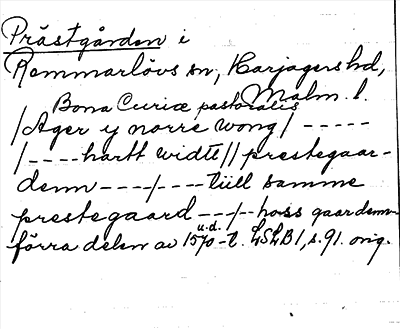 Prästgården i
Remmarlövs sn, Harjagers hd,
Malm. l.
Bona Curiæ pastoralis
/Ager y norre wong/ -----
/----hartt widtt// prestegaar-
denn ----/---- tiill samme
prestegaard ---/-- hoss gaardenn
förra delen av 1570-t. LSLB1, s. 91. orig.
u.d.